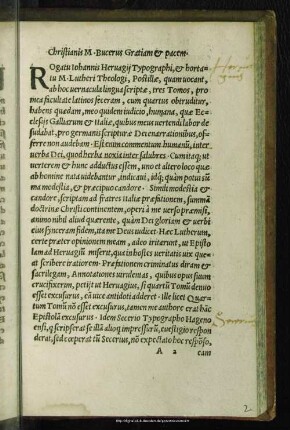 Christianis M. Bucerus Gratiam & pacem.
ROgatu Iohannis Heruagij Typographi, & horta-
tu M. Lutheri Theologi, Postillæ, quam uocant,
ab hoc uernacula lingua scriptæ, tres Tomos, pro
mea facultate latinos feceram, cum quartus oberuditur,
habens quædam, meo quidem iudicio, humana, quæ Ec-
clesijs Galliarum & Italiæ, quibus meus uertendi labor de
sudabat, pro germanis scripturæ Dei enarrationibus, of-
ferre non audebam. Est enim commentum humanũ, inter
uerba Dei, quod herba noxia inter salubres. Cum itaq; ut
uerterem & hunc adductus essem, uno et altero loco quæ
ab homine nata uidebantur, indicaui, idq; quàm potui sũ
ma modestia, & præcipuo candore. Simile modestia &
candore, scriptam ad fratres italiæ præfationem, summã
doctrinæ Christi continentem, operi à me uerso præmisi,
animo nihil aliud quærente, quàm Dei gloriam & uerbi
eius synceram fidem, ita me Deus iudicet. Hæc Lutherum,
certe præter opinionem meam, adeo irritarunt, ut Episto
lam ad Heruagiũ miserit, quæ in hostes ueritatis uix que-
at scribere iratiorem. Præfationem criminatus diram &
sacrilegam, Annotationes uirulentas, quibus opus suum
crucifixerim, petijt ut Heruagius, si quartũ Tomũ denuo
esset excusurus, eã uice antidoti adderet. Ille licet Quar-
tum Tomũ nõ esset excusurus, tamen me authore erat hãc
Epistolã excusurus. Idem Secerio Typographo Hageno
ensi, q̃ scripserat se illã alioq impressurũ, e uestigio respon
derat, sed e ceperat tũ Secerius, nõ expectato hoc respõso,
A 2 eam
2